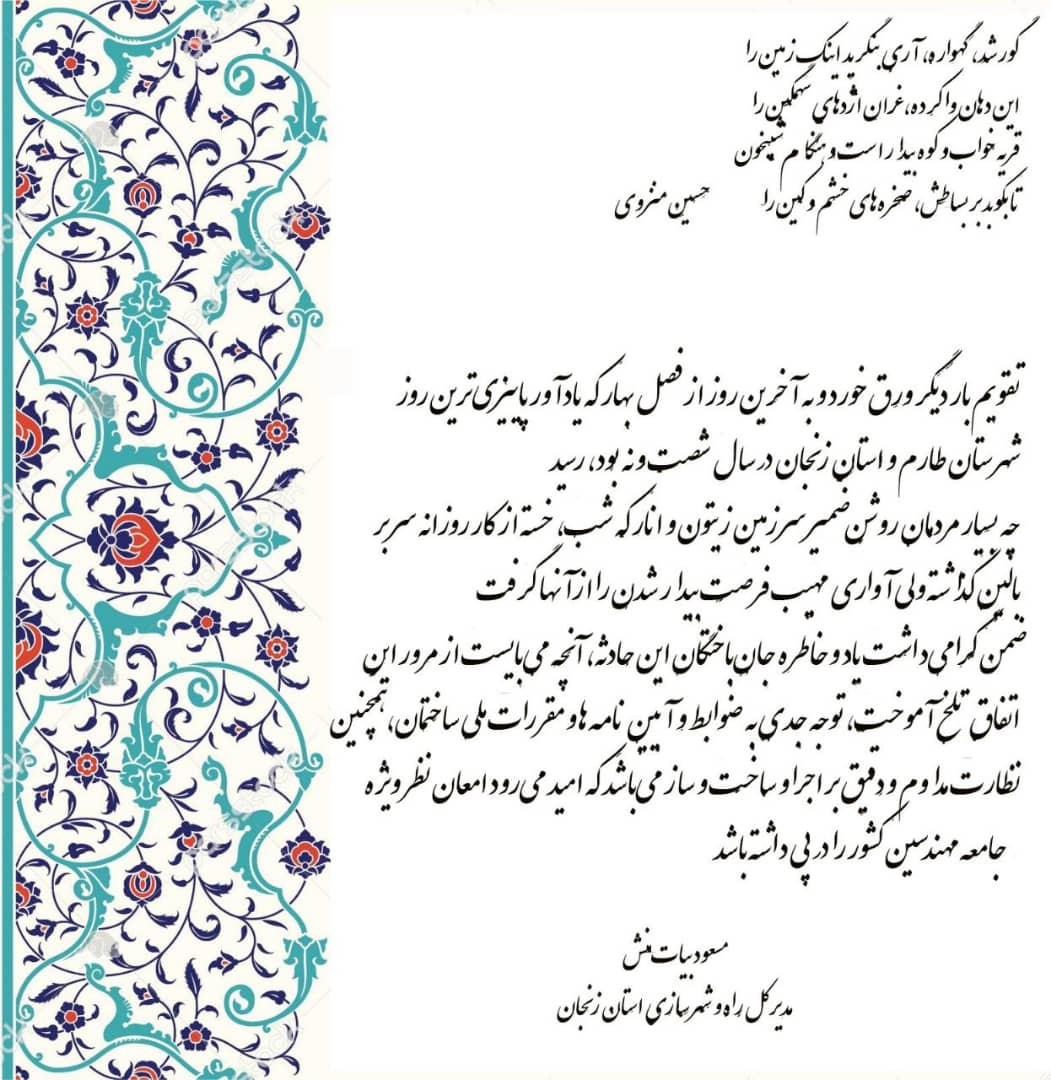 گور شد، گهواره، آری بنگرید اینک زمین را
این دهان وا کرده، غران اژدهای سهمگین را
قریه خواب و کوه بیدار است و هنگام شبیخون
تا بکوبد بر بساطش، صخره های خشم و کین را حسین منزوی
تقویم بار دیگر ورق خورد و به آخرین روز از فصل بهار که یادآور پاییزی ترین روز
شهرستان طارم و استان زنجان در سال شصت و نه بود، رسید
چه بسیار مردمان روشن ضمیر سرزمین زیتون و انار که شب، خسته از کار روزانه سر بر
بالین گذاشته ولی آواری مهیب فرصت بیدار شدن را از آنها گرفت
ضمن گرامی داشت یاد و خاطره جان باختگان این حادثه، آنچه می بایست از مرور این
اتفاق تلخ آموخت، توجه جدی به ضوابط و آیین نامه ها و مقررات ملی ساختمان، همچنین
نظارت مداوم و دقیق بر اجرا و ساخت و ساز می باشد که امید می رود امعان نظر ویژه
جامعه مهندسین کشور را در پی داشته باشد
مسعود بیات منش
مدیر کل راه و شهرسازی استان زنجان